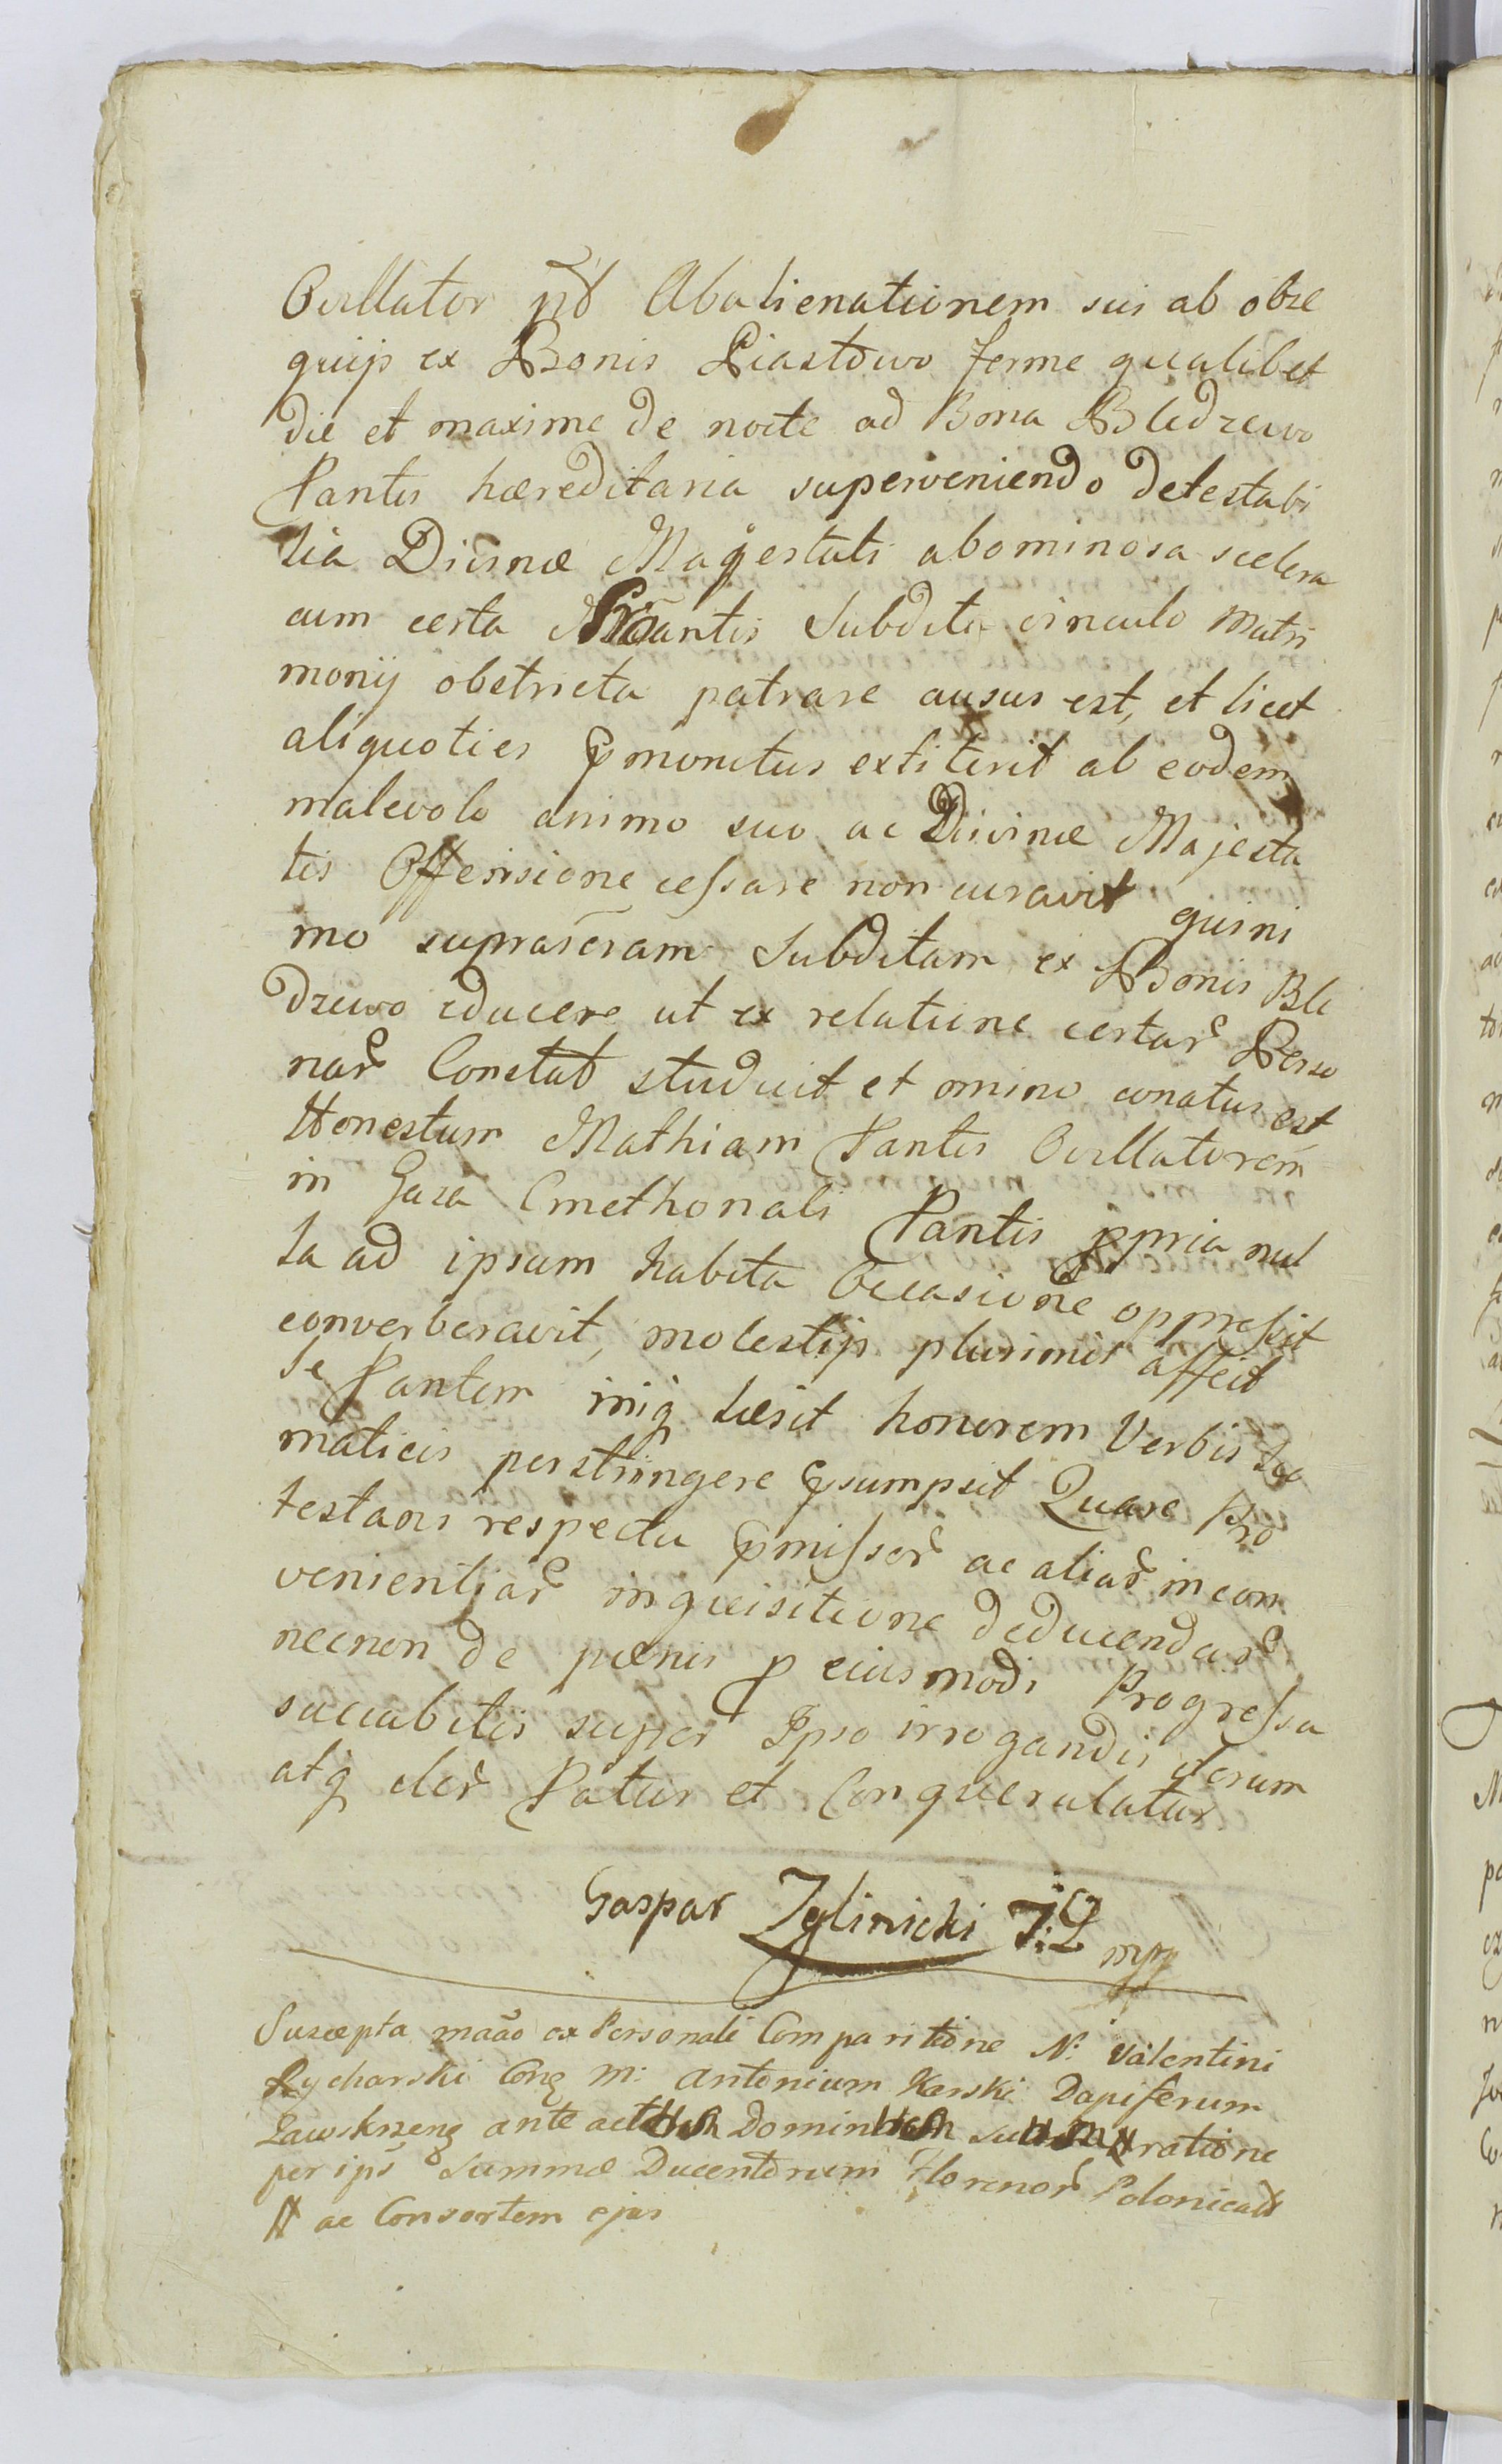 Ovillator pt Abalienationem sui ab obse
quijs ex Bonis Piastowo ferme qualibet
die et maxime de nocte ad Bona Bledzewo
Ptantis hæreditaria superveniendo detestabi
lia Divinæ Magestati abominosa scelera
cum certa Ptantis Subdita vinculo Matri
monij obstricta patrare ausus est, et licet
aliquoties pmonitus extiterit ab eodem
malevolo animo suo ac Divinæ Majesta
tis Offensione cessare non curavit quini
mo suprascram Subditam ex Bonis Ble
dzewo educere ut ex relatione certar Perso
nar Constat studuit et omino conatus est
Honestum Mathiam Ptantis Ovillatorem
in Gaza Cmethonali Ptantis ppria nul
la ad ipsum habita Occasione oppressit
converberavit, molestijs plurimis affecit
se Ptantem iniq læsit honorem Verbis
maticis perstringere psumpsit Quare Pro
testans respectu pmissor ac aliar incon
venientjar inquisitione deducendar
necnon de pænis p eiusmodi Progressu
succubitis super Ipso irrogandis iterum
atq iter Ptatur et Conquerulatur
Gaspar Zglinicki mpp
Suscepta maão ex Personali Comparitione N: Valentini
Rycharski Cong M: Antonium Karski Dapiferum
Zawskrzeng ante Dominum ratione
per ips Summæ Ducentorum Florenor Polonicat
# ac Consortem ejus